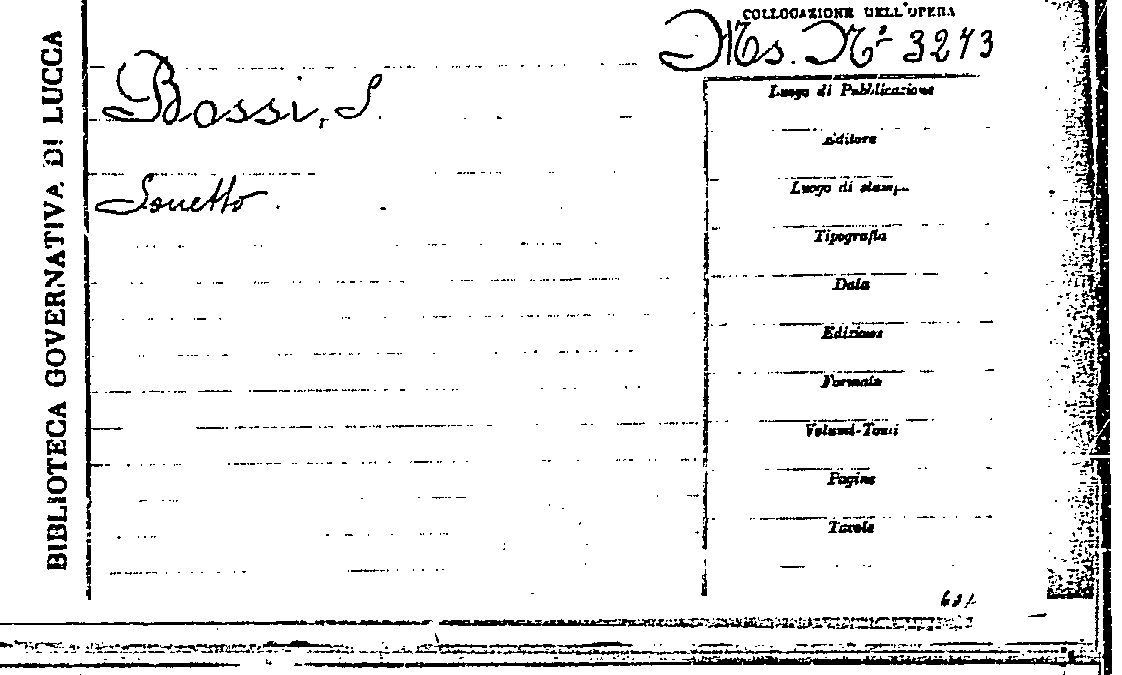 BIBLIOTECA GOVERNATIVA DI LUCCA
COLLOCAZIONE DELL'OPERA
Ms. N.º 3273
Bossi, S.
Sonetto.
Luogo di Pubblicazione
Editore
Luogo di stampa
Tipografia
Data
Edizione
Formato
Volumi-Tomi
Pagine
Tavole